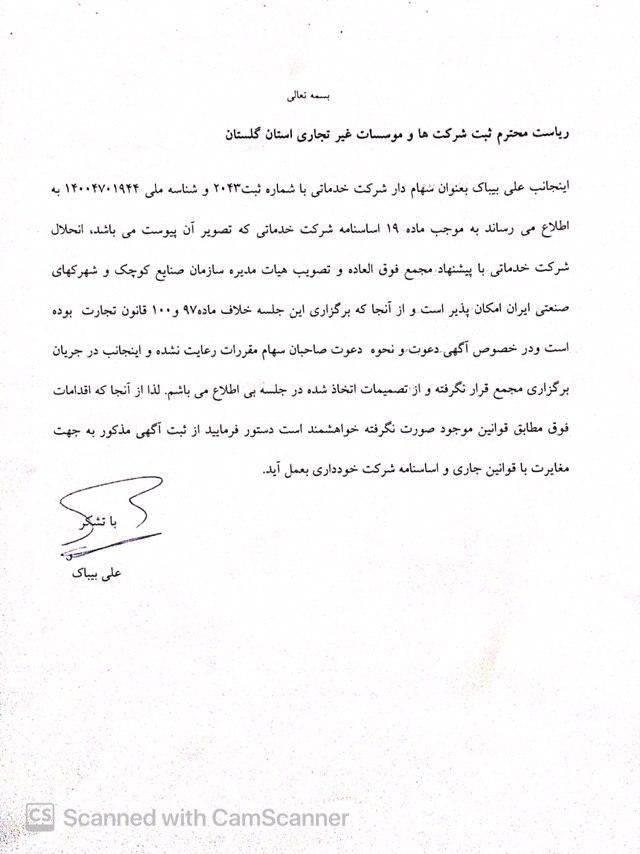 بسمه تعالی
ریاست محترم ثبت شرکت ها و موسسات غیر تجاری استان گلستان
اینجانب علی بیباک بعنوان سهام دار شرکت خدماتی با شماره ثبت۲۰۴۳ و شناسه ملی ۱۴۰۰۴۷۰۱۹۴۴ به
اطلاع می رساند به موجب ماده ۱۹ اساسنامه شرکت خدماتی که تصویر آن پیوست می باشد، انحلال
شرکت خدماتی با پیشنهاد مجمع فوق العاده و تصویب هیات مدیره سازمان صنایع کوچک و شهرکهای
صنعتی ایران امکان پذیر است و از آنجا که برگزاری این جلسه خلاف ماده۹۷ و۱۰۰ قانون تجارت بوده
است ودر خصوص آگهی دعوت و نحوه دعوت صاحبان سهام مقررات رعایت نشده و اینجانب در جریان
برگزاری مجمع قرار نگرفته و از تصمیمات اتخاذ شده در جلسه بی اطلاع می باشم. لذا از آنجا که اقدامات
فوق مطابق قوانین موجود صورت نگرفته خواهشمند است دستور فرمایید از ثبت آگهی مذکور به جهت
مغایرت با قوانین جاری و اساسنامه شرکت خودداری بعمل آید.
با تشکر
علی بیباک
CS Scanned with CamScanner